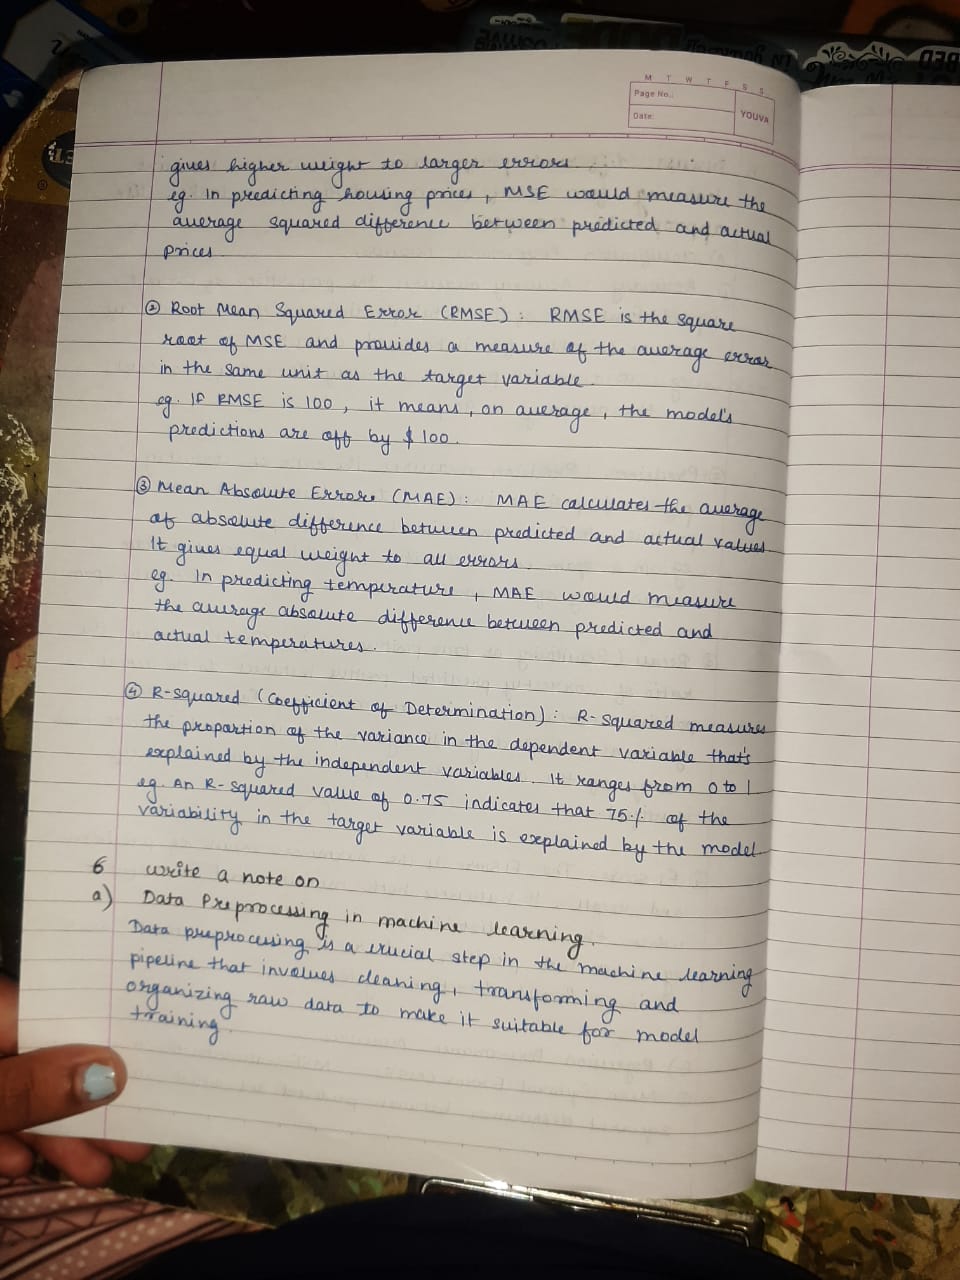 M T W T F S S
Page No.:
Date:
YOUVA
gives higher weight to larger errors.
eg. In predicting housing prices, MSE would measure the
average squared difference between predicted and actual
prices.
② Root Mean Squared Error (RMSE): RMSE is the square
root of MSE and provides a measure of the average error
in the same unit as the target variable.
eg. If RMSE is 100, it means, on average, the model's
predictions are off by $100.
③ Mean Absolute Errors (MAE): MAE calculates the average
of absolute difference between predicted and actual values.
It gives equal weight to all errors.
eg. In predicting temperature, MAE would measure
the average absolute difference between predicted and
actual temperatures.
④ R-squared (Coefficient of Determination): R-squared measures
the proportion of the variance in the dependent variable that's
explained by the independent variables. It ranges from 0 to 1
eg. An R-squared value of 0.75 indicates that 75% of the
variability in the target variable is explained by the model.
6 write a note on
a) Data Preprocessing in machine learning.
Data preprocessing is a crucial step in the machine learning
pipeline that involves cleaning, transforming and
organizing raw data to make it suitable for model
training.